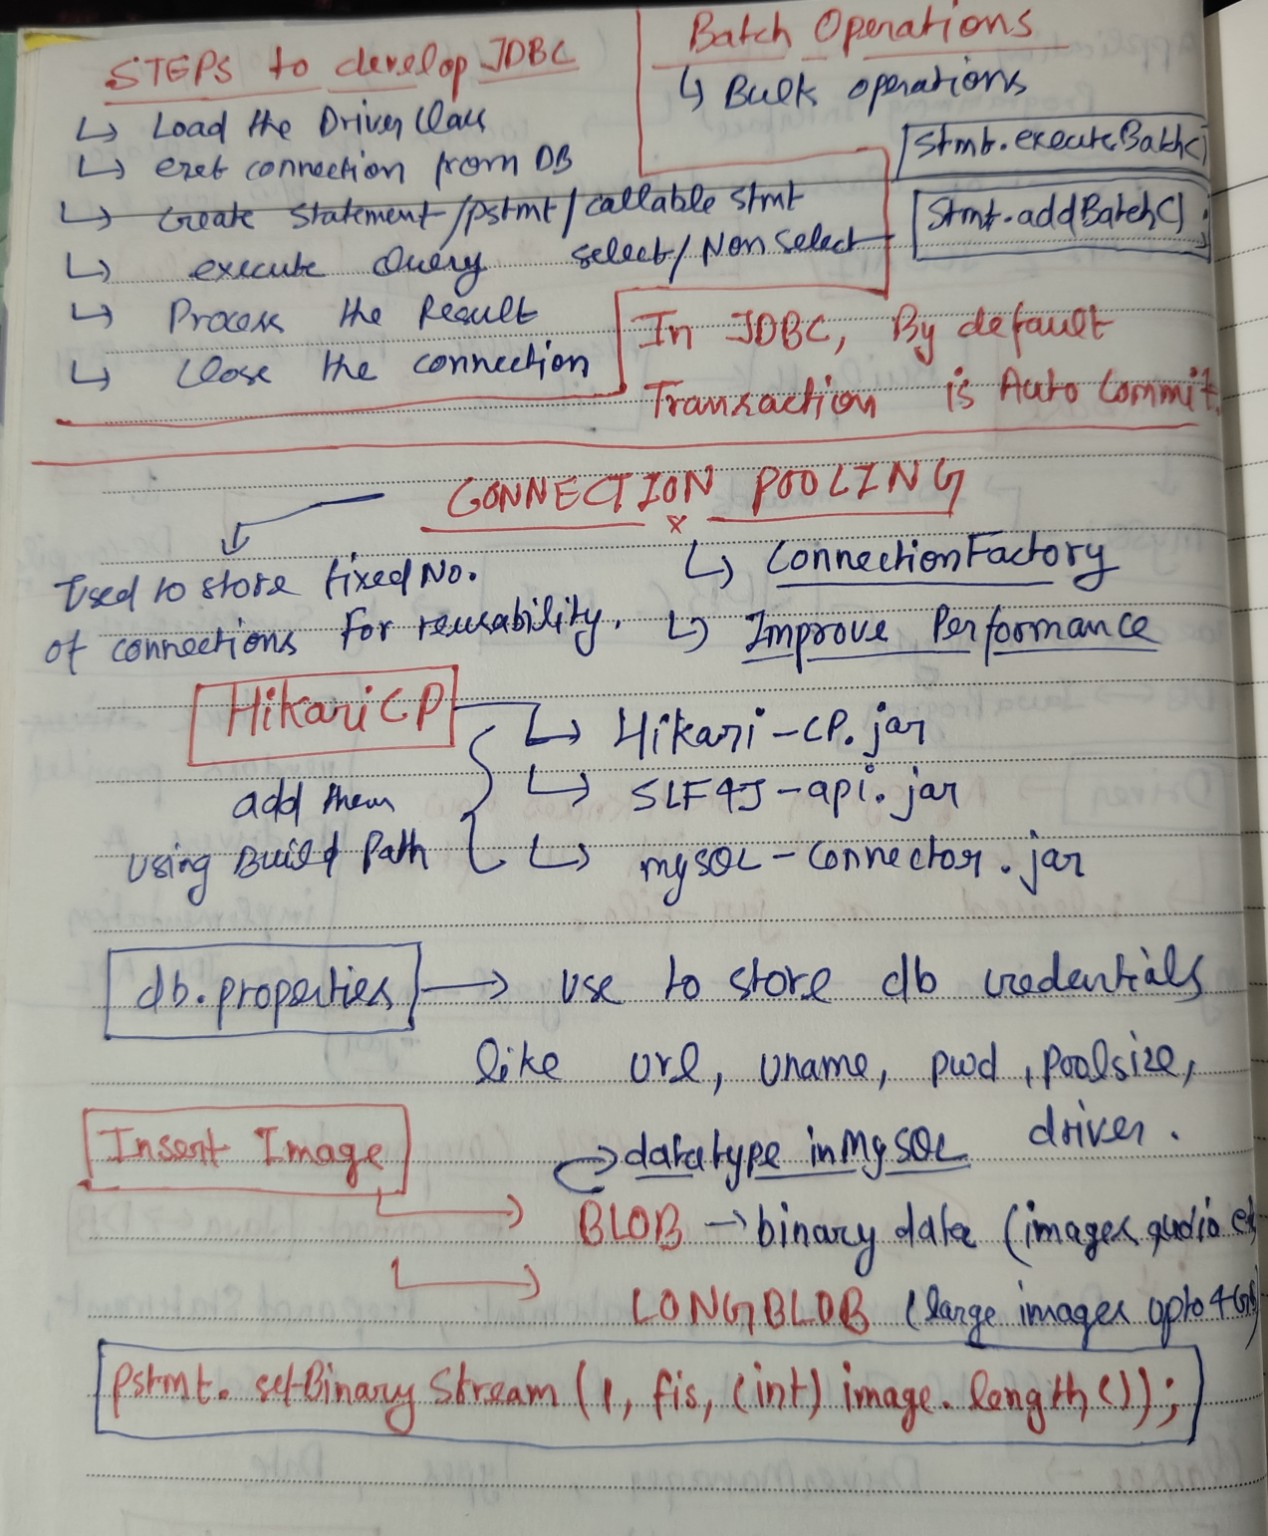 STEPS to develop JDBC
↳ Load the Driver Class
↳ eret connection from DB
↳ Create Statement/pstmt/callable stmt
↳ execute Query select/Non select
↳ Process the Result
↳ Close the connection
Batch Operations
↳ Bulk operations
Stmt.executeBatch()
Stmt.addBatch();
In JDBC, By default
Transaction is Auto Commit.
CONNECTION POOLING
Used to store fixed No.
of connections for reusability.
↳ ConnectionFactory
↳ Improve Performance
HikariCP
↳ Hikari-CP.jar
↳ SLF4J-api.jar
↳ mySQL-Connector.jar
add them
using Build Path
db.properties → use to store db credentials
like url, uname, pwd, poolsize,
driver.
Insert Image
→ datatype in MySQL
BLOB → binary data (images audio
LONGBLOB (large images upto 4GB)
Pstmt.setBinaryStream(1, fis, (int) image.length());